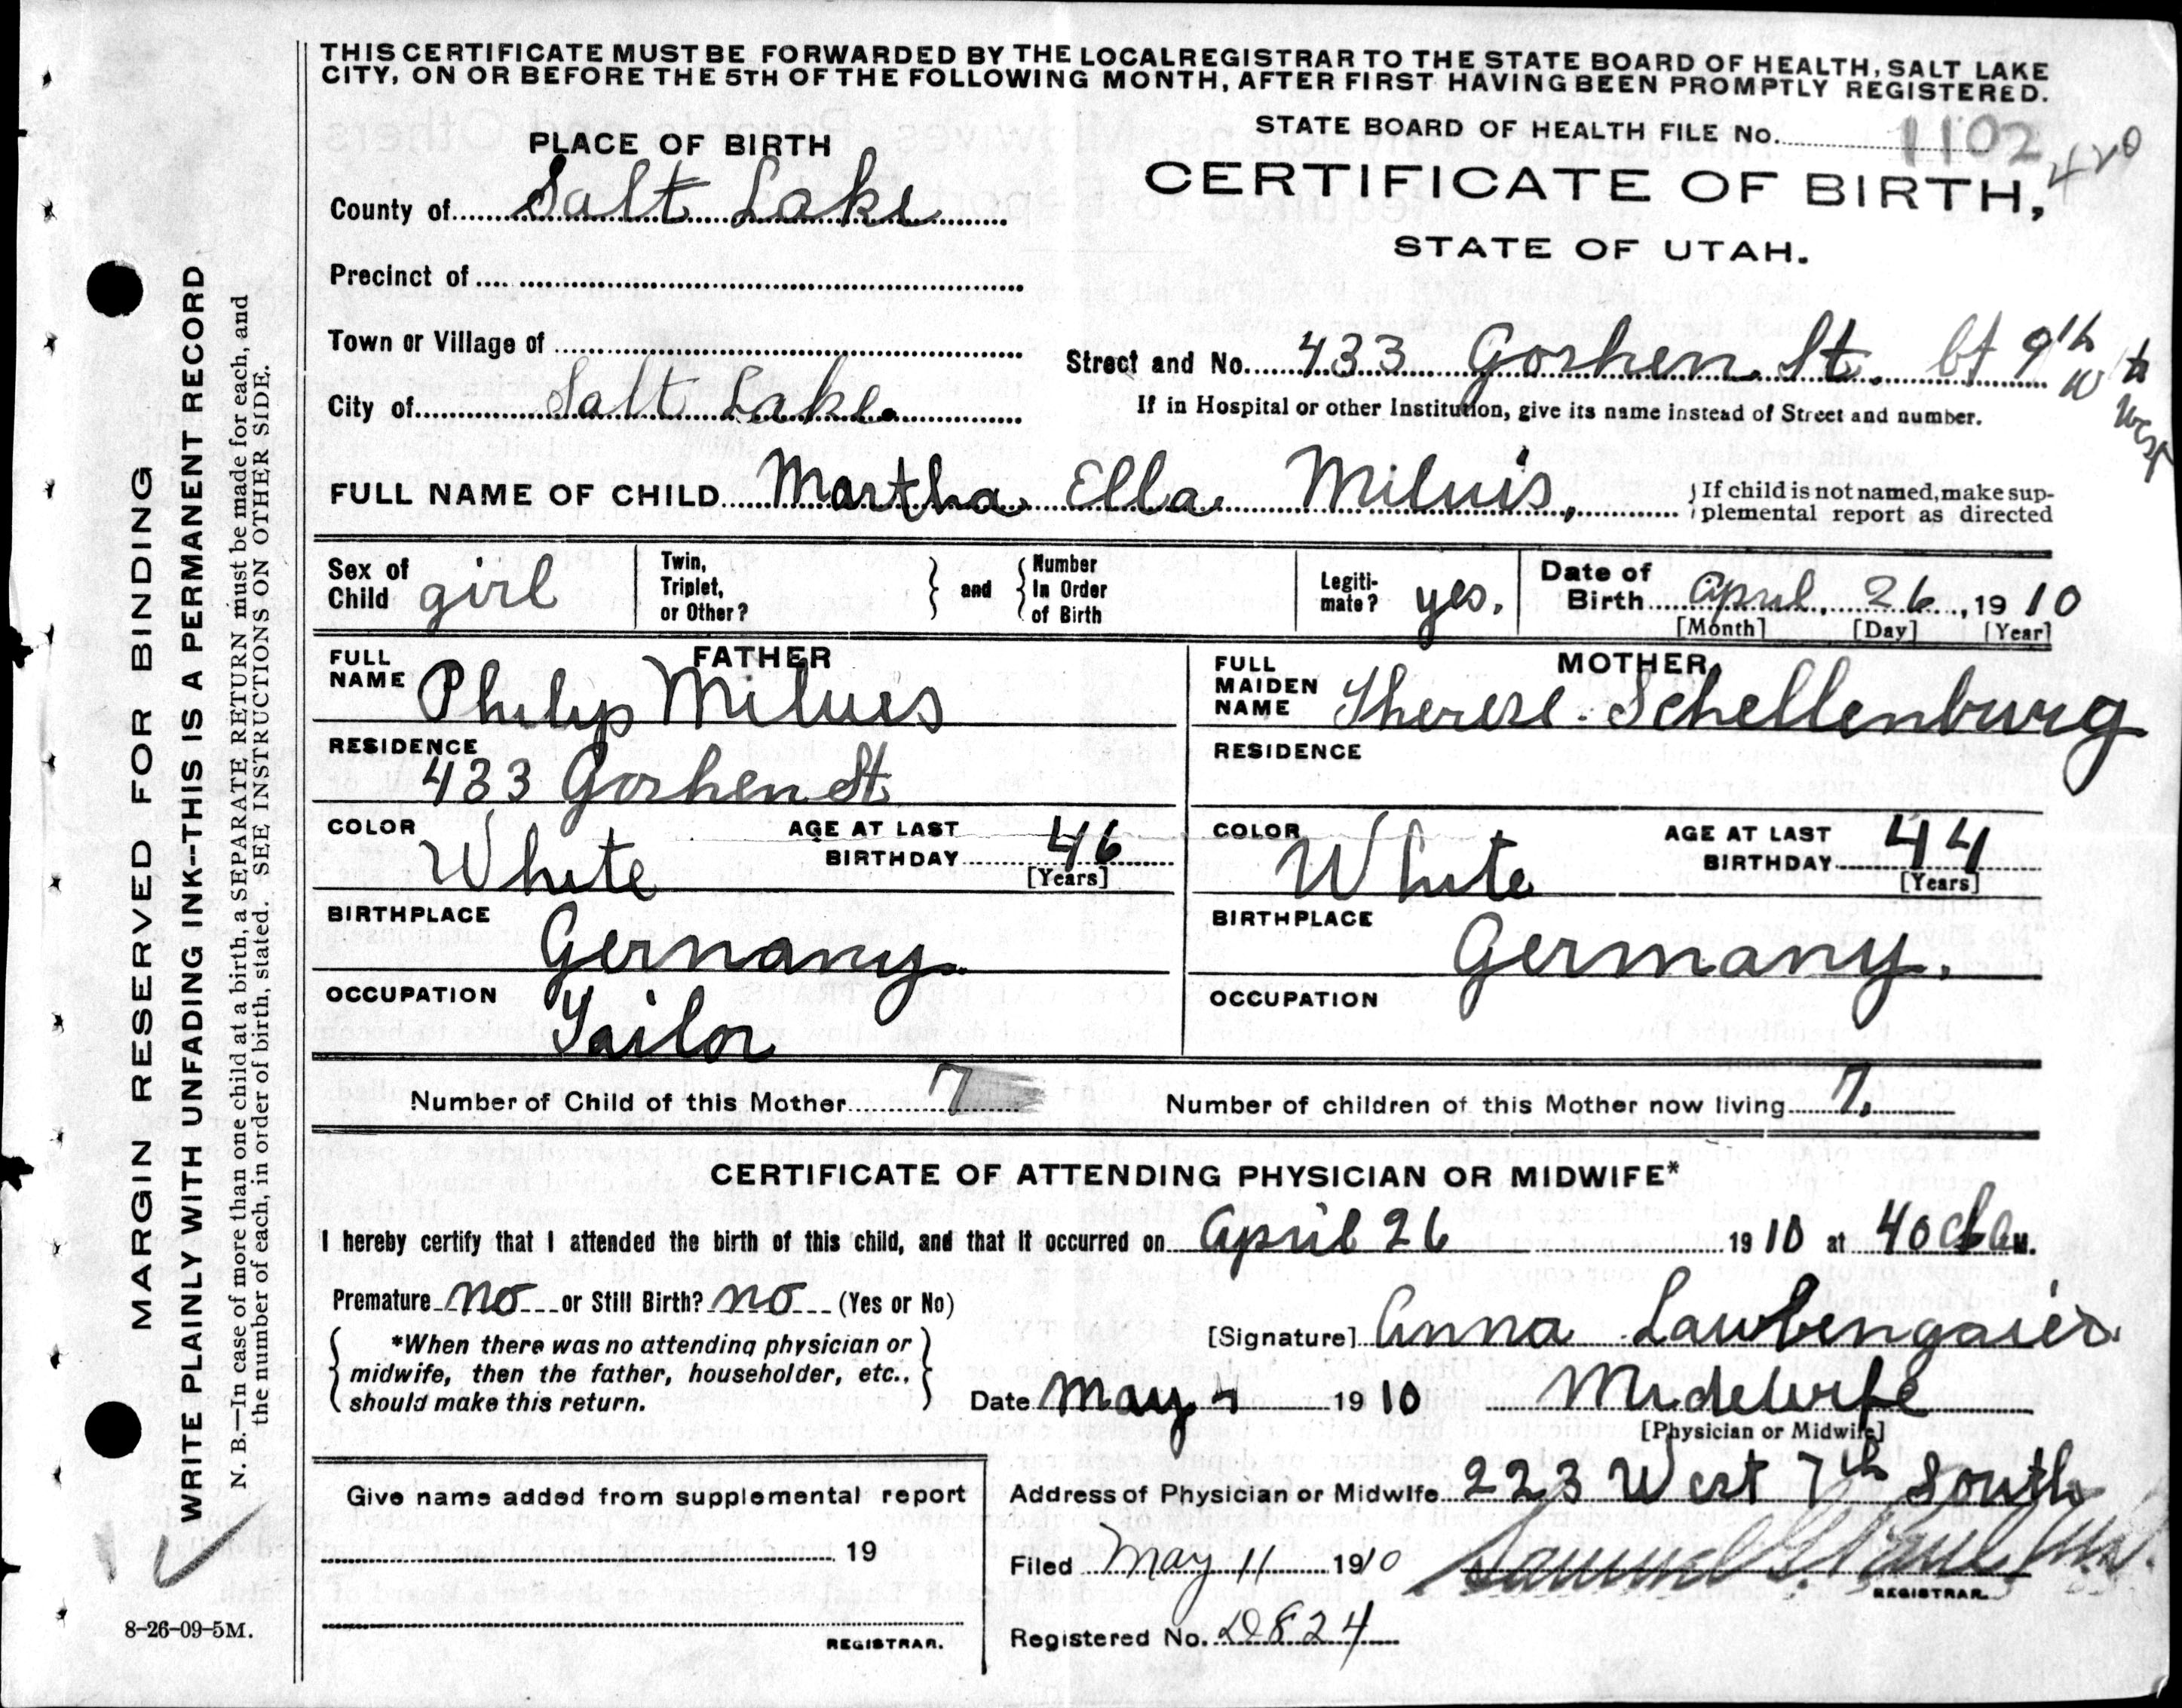 THIS CERTIFICATE MUST BE FORWARDED BY THE LOCAL REGISTRAR TO THE STATE BOARD OF HEALTH, SALT LAKE
CITY, ON OR BEFORE THE 5TH OF THE FOLLOWING MONTH, AFTER FIRST HAVING BEEN PROMPTLY REGISTERED.
STATE BOARD OF HEALTH FILE No. 1102
420
PLACE OF BIRTH
CERTIFICATE OF BIRTH,
STATE OF UTAH.
County of Salt Lake
Precinct of
Town or Village of
Street and No. 433 Goshen St. bt 9th
10th
West
City of Salt Lake.
If in Hospital or other Institution, give its name instead of Street and number.
FULL NAME OF CHILD Martha Ella Miluis,
If child is not named, make sup-
plemental report as directed
Sex of Child girl
Twin, Triplet, or Other?
and
Number In Order of Birth
Legiti-mate? yes.
Date of Birth April, 26, 1910
[Month] [Day] [Year]
FATHER
FULL NAME Philip Miluis
RESIDENCE
433 Goshen St
COLOR White
AGE AT LAST BIRTHDAY 46
[Years]
BIRTHPLACE Gernany.
OCCUPATION Tailor
MOTHER
FULL MAIDEN NAME Therese Schellenburg
RESIDENCE
COLOR White
AGE AT LAST BIRTHDAY 44
[Years]
BIRTHPLACE Germany.
OCCUPATION
Number of Child of this Mother 7
Number of children of this Mother now living 7.
CERTIFICATE OF ATTENDING PHYSICIAN OR MIDWIFE*
I hereby certify that I attended the birth of this child, and that it occurred on April 26 1910 at 4 M.
Premature no or Still Birth? no (Yes or No)
*When there was no attending physician or
midwife, then the father, householder, etc.,
should make this return.
[Signature] Anna
Date May 1910 Midewife
[Physician or Midwife]
Address of Physician or Midwife 223 West 7th South
Give name added from supplemental report
19
REGISTRAR.
Filed May 11 1910
REGISTRAR.
Registered No. D824
MARGIN RESERVED FOR BINDING
WRITE PLAINLY WITH UNFADING INK--THIS IS A PERMANENT RECORD
N. B.—In case of more than one child at a birth, a SEPARATE RETURN must be made for each, and
the number of each, in order of birth, stated. SEE INSTRUCTIONS ON OTHER SIDE.
8-26-09-5M.